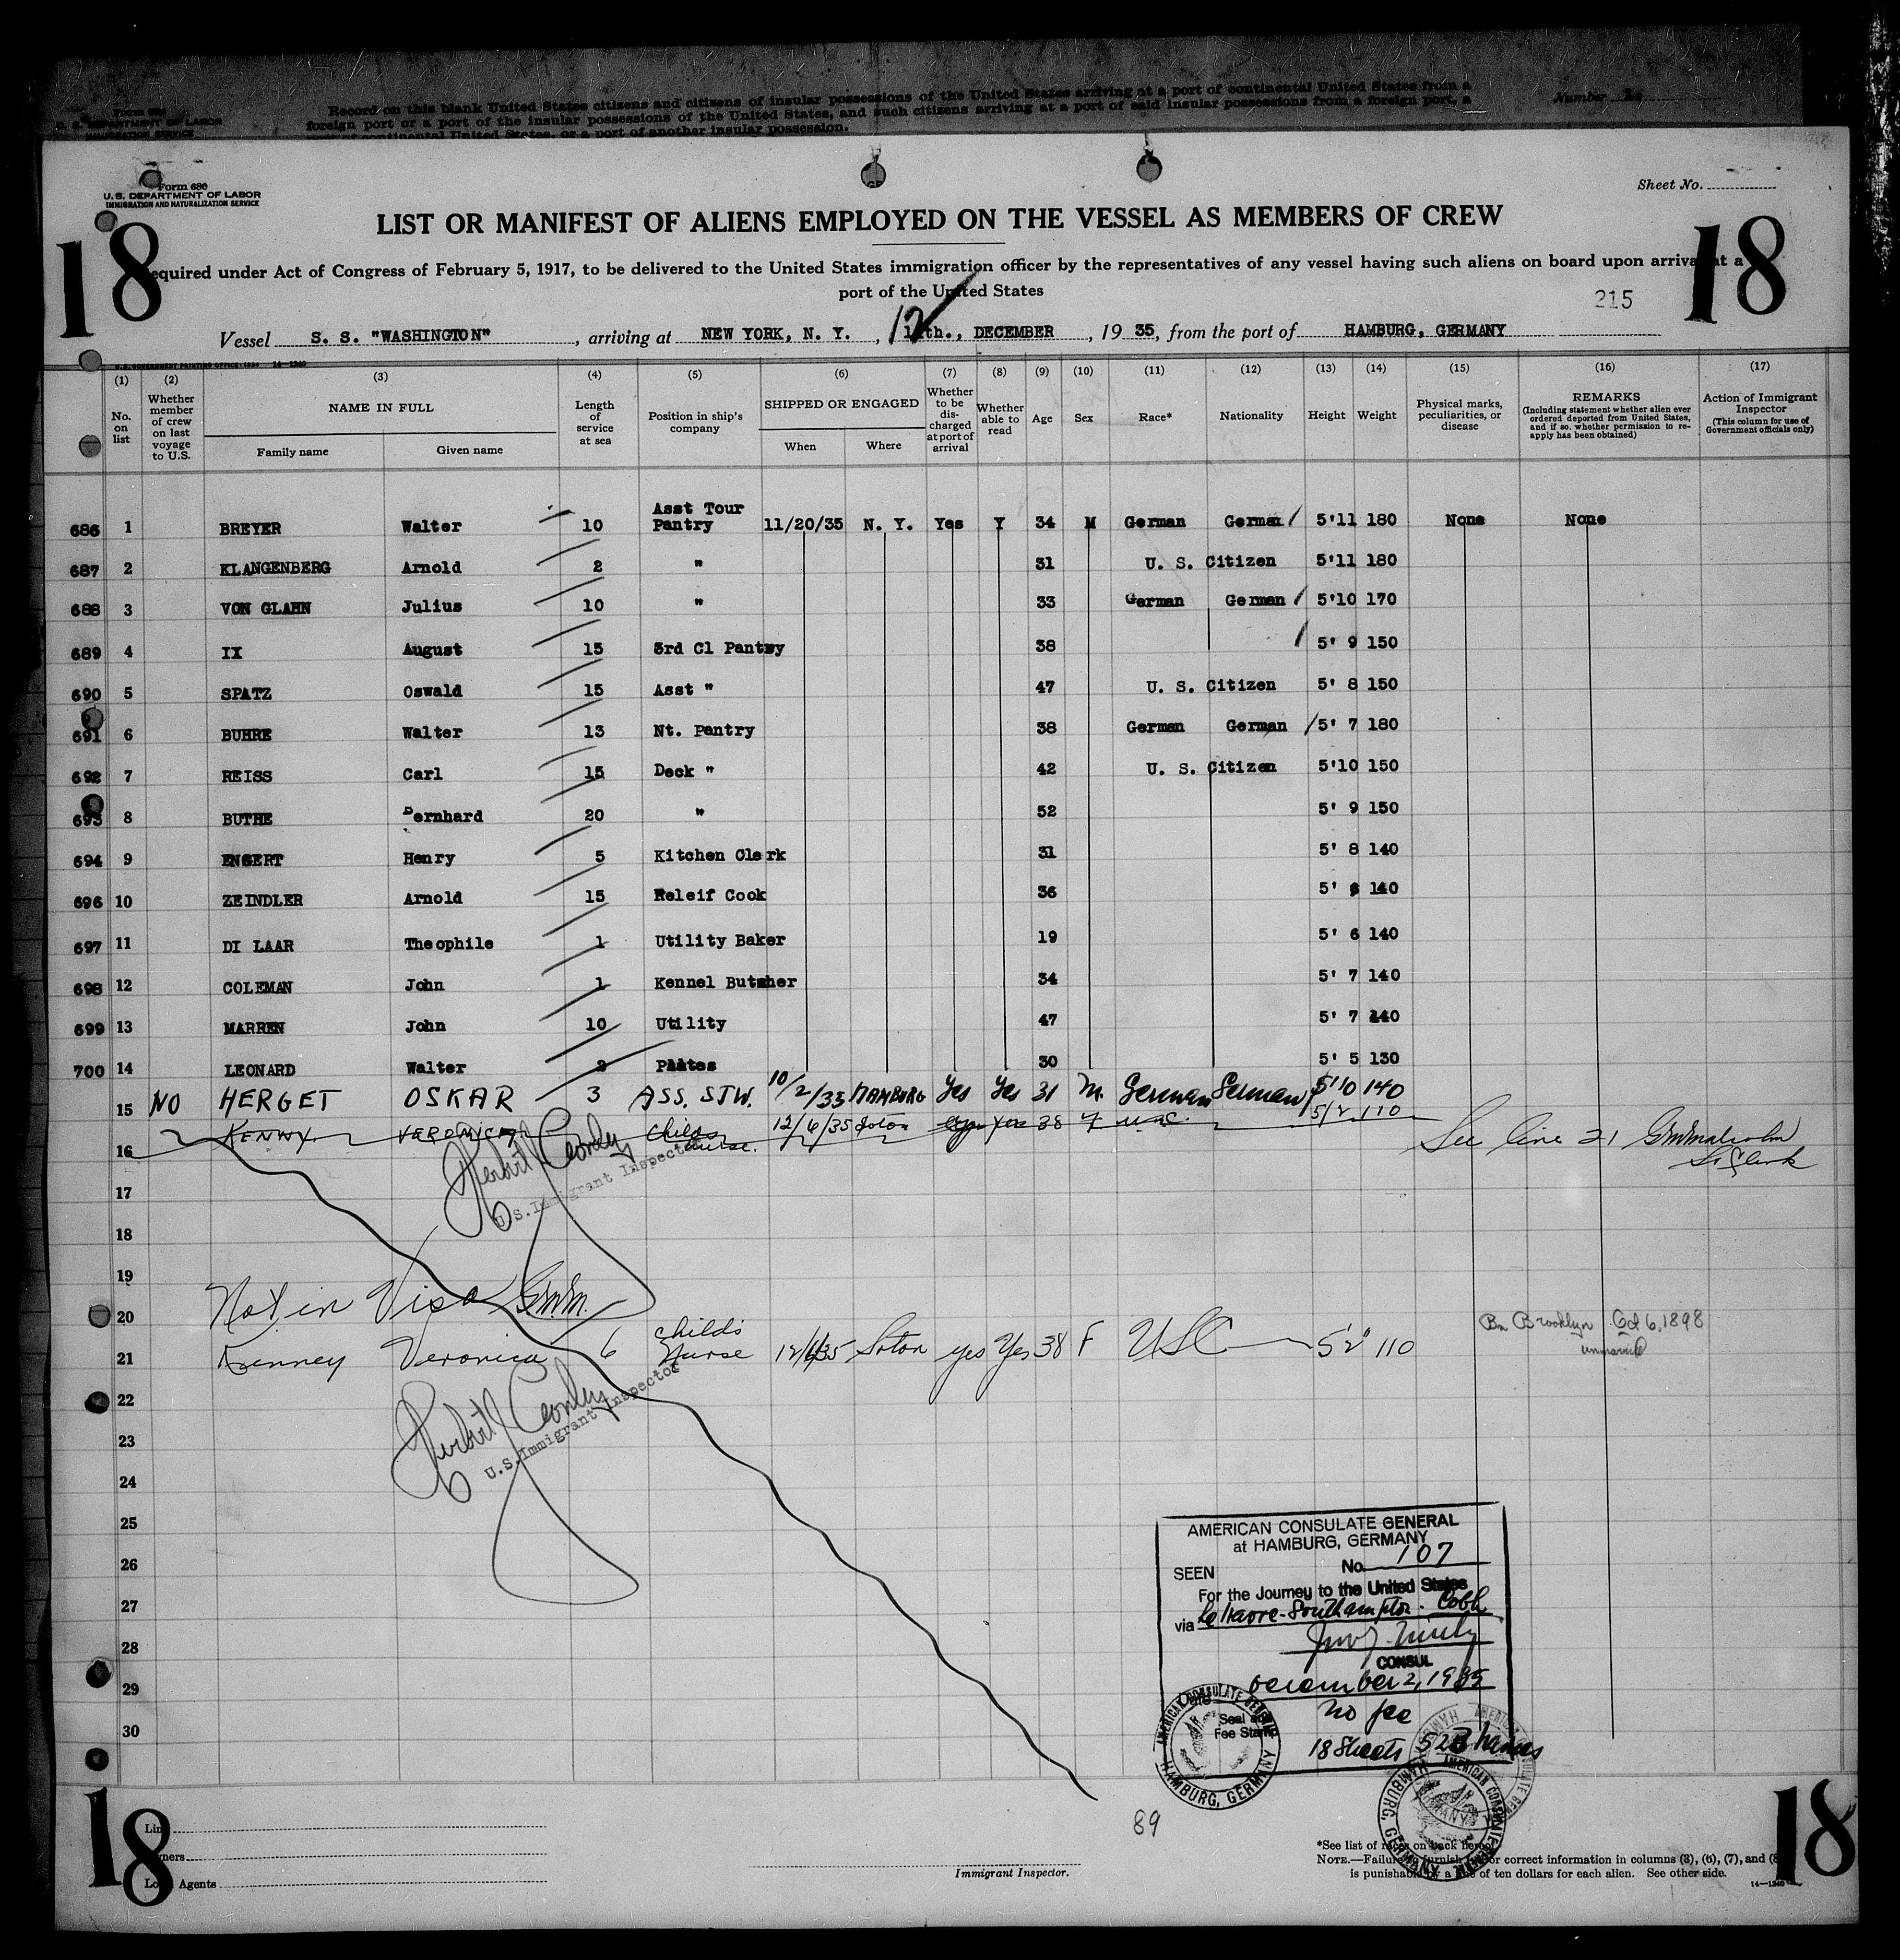 Form 680
U. S. DEPARTMENT OF LABOR
IMMIGRATION SERVICE
Record on this blank United States citizens and citizens of insular possessions of the United States arriving at a port of continental United States from a
foreign port or a port of the insular possessions of the United States, and such citizens arriving at a port of said insular possessions from a foreign port, a
port of continental United States, or a port of another insular possession.
Number
Form 680
U. S. DEPARTMENT OF LABOR
IMMIGRATION AND NATURALIZATION SERVICE
Sheet No.
LIST OR MANIFEST OF ALIENS EMPLOYED ON THE VESSEL AS MEMBERS OF CREW
18 18
equired under Act of Congress of February 5, 1917, to be delivered to the United States immigration officer by the representatives of any vessel having such aliens on board upon arrival at a
port of the United States
215
Vessel S. S. "WASHINGTON", arriving at NEW YORK, N. Y., 12 th., DECEMBER, 19 35, from the port of HAMBURG, GERMANY
U. S. GOVERNMENT PRINTING OFFICE: 1934 14-1240
(1) (2) (3) (4) (5) (6) (7) (8) (9) (10) (11) (12) (13) (14) (15) (16) (17)
No. on list
Whether member of crew on last voyage to U.S.
NAME IN FULL
Family name Given name
Length of service at sea
Position in ship's company
SHIPPED OR ENGAGED
When Where
Whether to be discharged at port of arrival
Whether able to read
Age Sex Race* Nationality Height Weight
Physical marks, peculiarities, or disease
REMARKS
(Including statement whether alien ever ordered deported from United States, and if so, whether permission to reapply has been obtained)
Action of Immigrant Inspector
(This column for use of Government officials only)
686 1 BREYER Walter 10 Asst Tour Pantry 11/20/35 N. Y. Yes Y 34 M German German 5'11 180 None None
687 2 KLANGENBERG Arnold 2 " 31 U. S. Citizen 5'11 180
688 3 VON GLAHN Julius 10 " 33 German German 5'10 170
689 4 IX August 15 3rd Cl Pantry 38 5' 9 150
690 5 SPATZ Oswald 15 Asst " 47 U. S. Citizen 5' 8 150
691 6 BUHRE Walter 13 Nt. Pantry 38 German German 5' 7 180
692 7 REISS Carl 15 Deck " 42 U. S. Citizen 5'10 150
693 8 BUTHE Bernhard 20 " 52 5' 9 150
694 9 ENGERT Henry 5 Kitchen Clerk 31 5' 8 140
696 10 ZEINDLER Arnold 15 Releif Cook 36 5' 140
697 11 DI LAAR Theophile 1 Utility Baker 19 5' 6 140
698 12 COLEMAN John 1 Kennel Butcher 34 5' 7 140
699 13 MARREN John 10 Utility 47 5' 7 140
700 14 LEONARD Walter 2 Plates 30 5' 5 130
15 NO HERGET OSKAR 3 ASS. STW. 10/2/35 HAMBURG Yes Yes 31 M. German German 5'10 140
16 KENNY VERONICA Childs nurse. 12/6/35 Soton Yes 38 F U.S.C. 5/2 110
See line 21 GMMalcolm
Sr Clerk
Herbert J Conley
U.S. Immigrant Inspector
17
18
19
Not in Visa GMM.
20
21 Kenney Veronica 6 Child's Nurse 12/6/35 Soton yes Yes 38 F USC 5'2" 110
Bn Brooklyn Oct 6, 1898
unmarried
Herbert J Conley
U.S. Immigrant Inspector
22
23
24
25
26
27
28
29
30
AMERICAN CONSULATE GENERAL
at HAMBURG, GERMANY
SEEN No. 107
For the Journey to the United States
via Le Havre-Southampton-Cobh
CONSUL
December 2, 1935
Seal and
Fee Stamp
No fee
18 Sheets 528 Names
AMERICAN CONSULATE GENERAL
HAMBURG, GERMANY
89
18 18
Line
Owners
Local Agents
Immigrant Inspector.
*See list of races on back hereof.
NOTE.—Failure to furnish or correct information in columns (3), (6), (7), and (8
is punishable by a fine of ten dollars for each alien. See other side.
14-1240